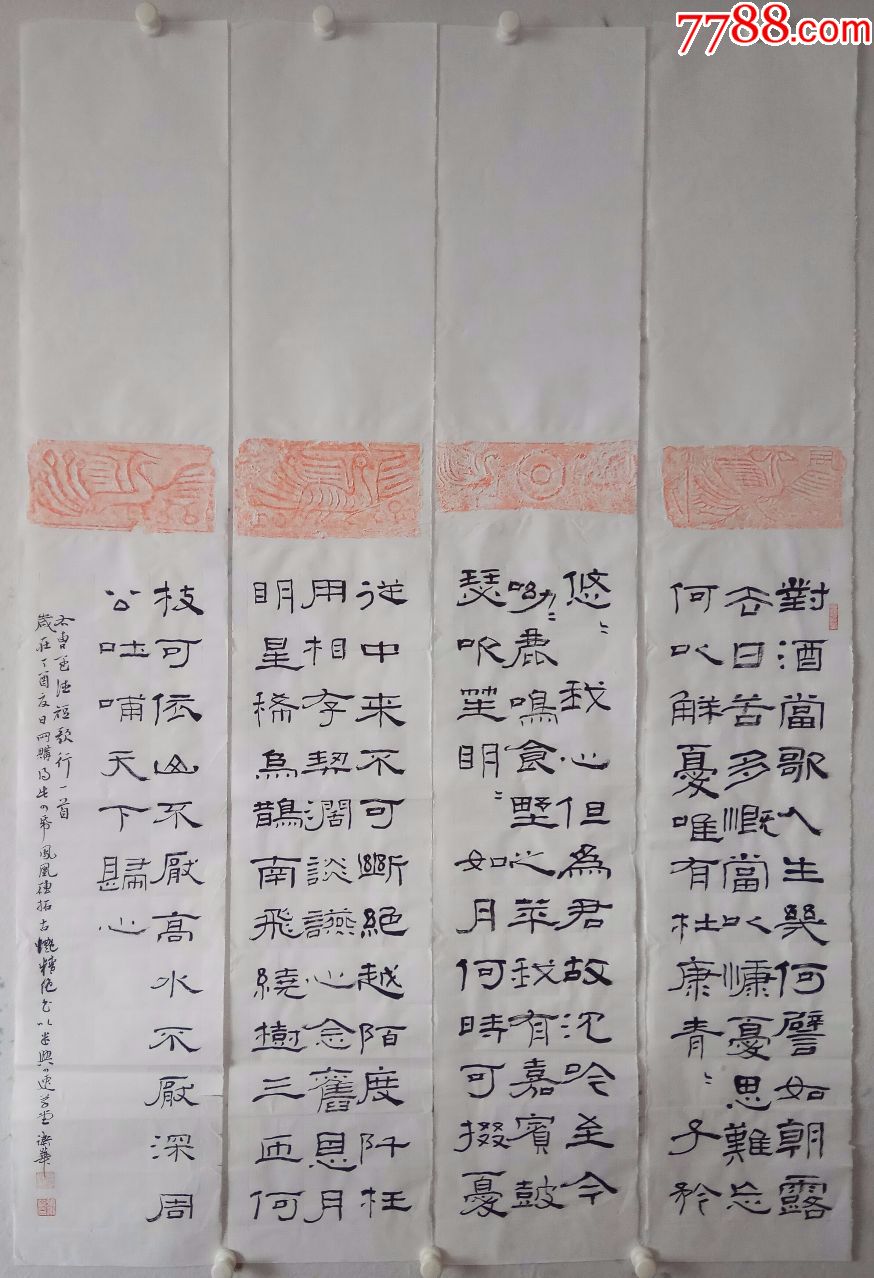 7788.com
對酒當歌人生幾何譬如朝露
去日苦多慨當以慷憂思難忘
何以解憂唯有杜康青〻子衿
悠〻我心但為君故沈吟至今
呦〻鹿鳴食壄之苹我有嘉賓鼓
瑟吹笙明〻如月何時可掇憂
從中来不可斷絕越陌度阡枉
用相存契濶談讌心念舊恩月
明星稀烏鵲南飛繞樹三匝何
枝可依山不厭高水不厭深周
公吐哺天下歸心
右曹孟德短歌行一首
歲在丁酉夏日网購得此鳳凰磚拓古樸精絕